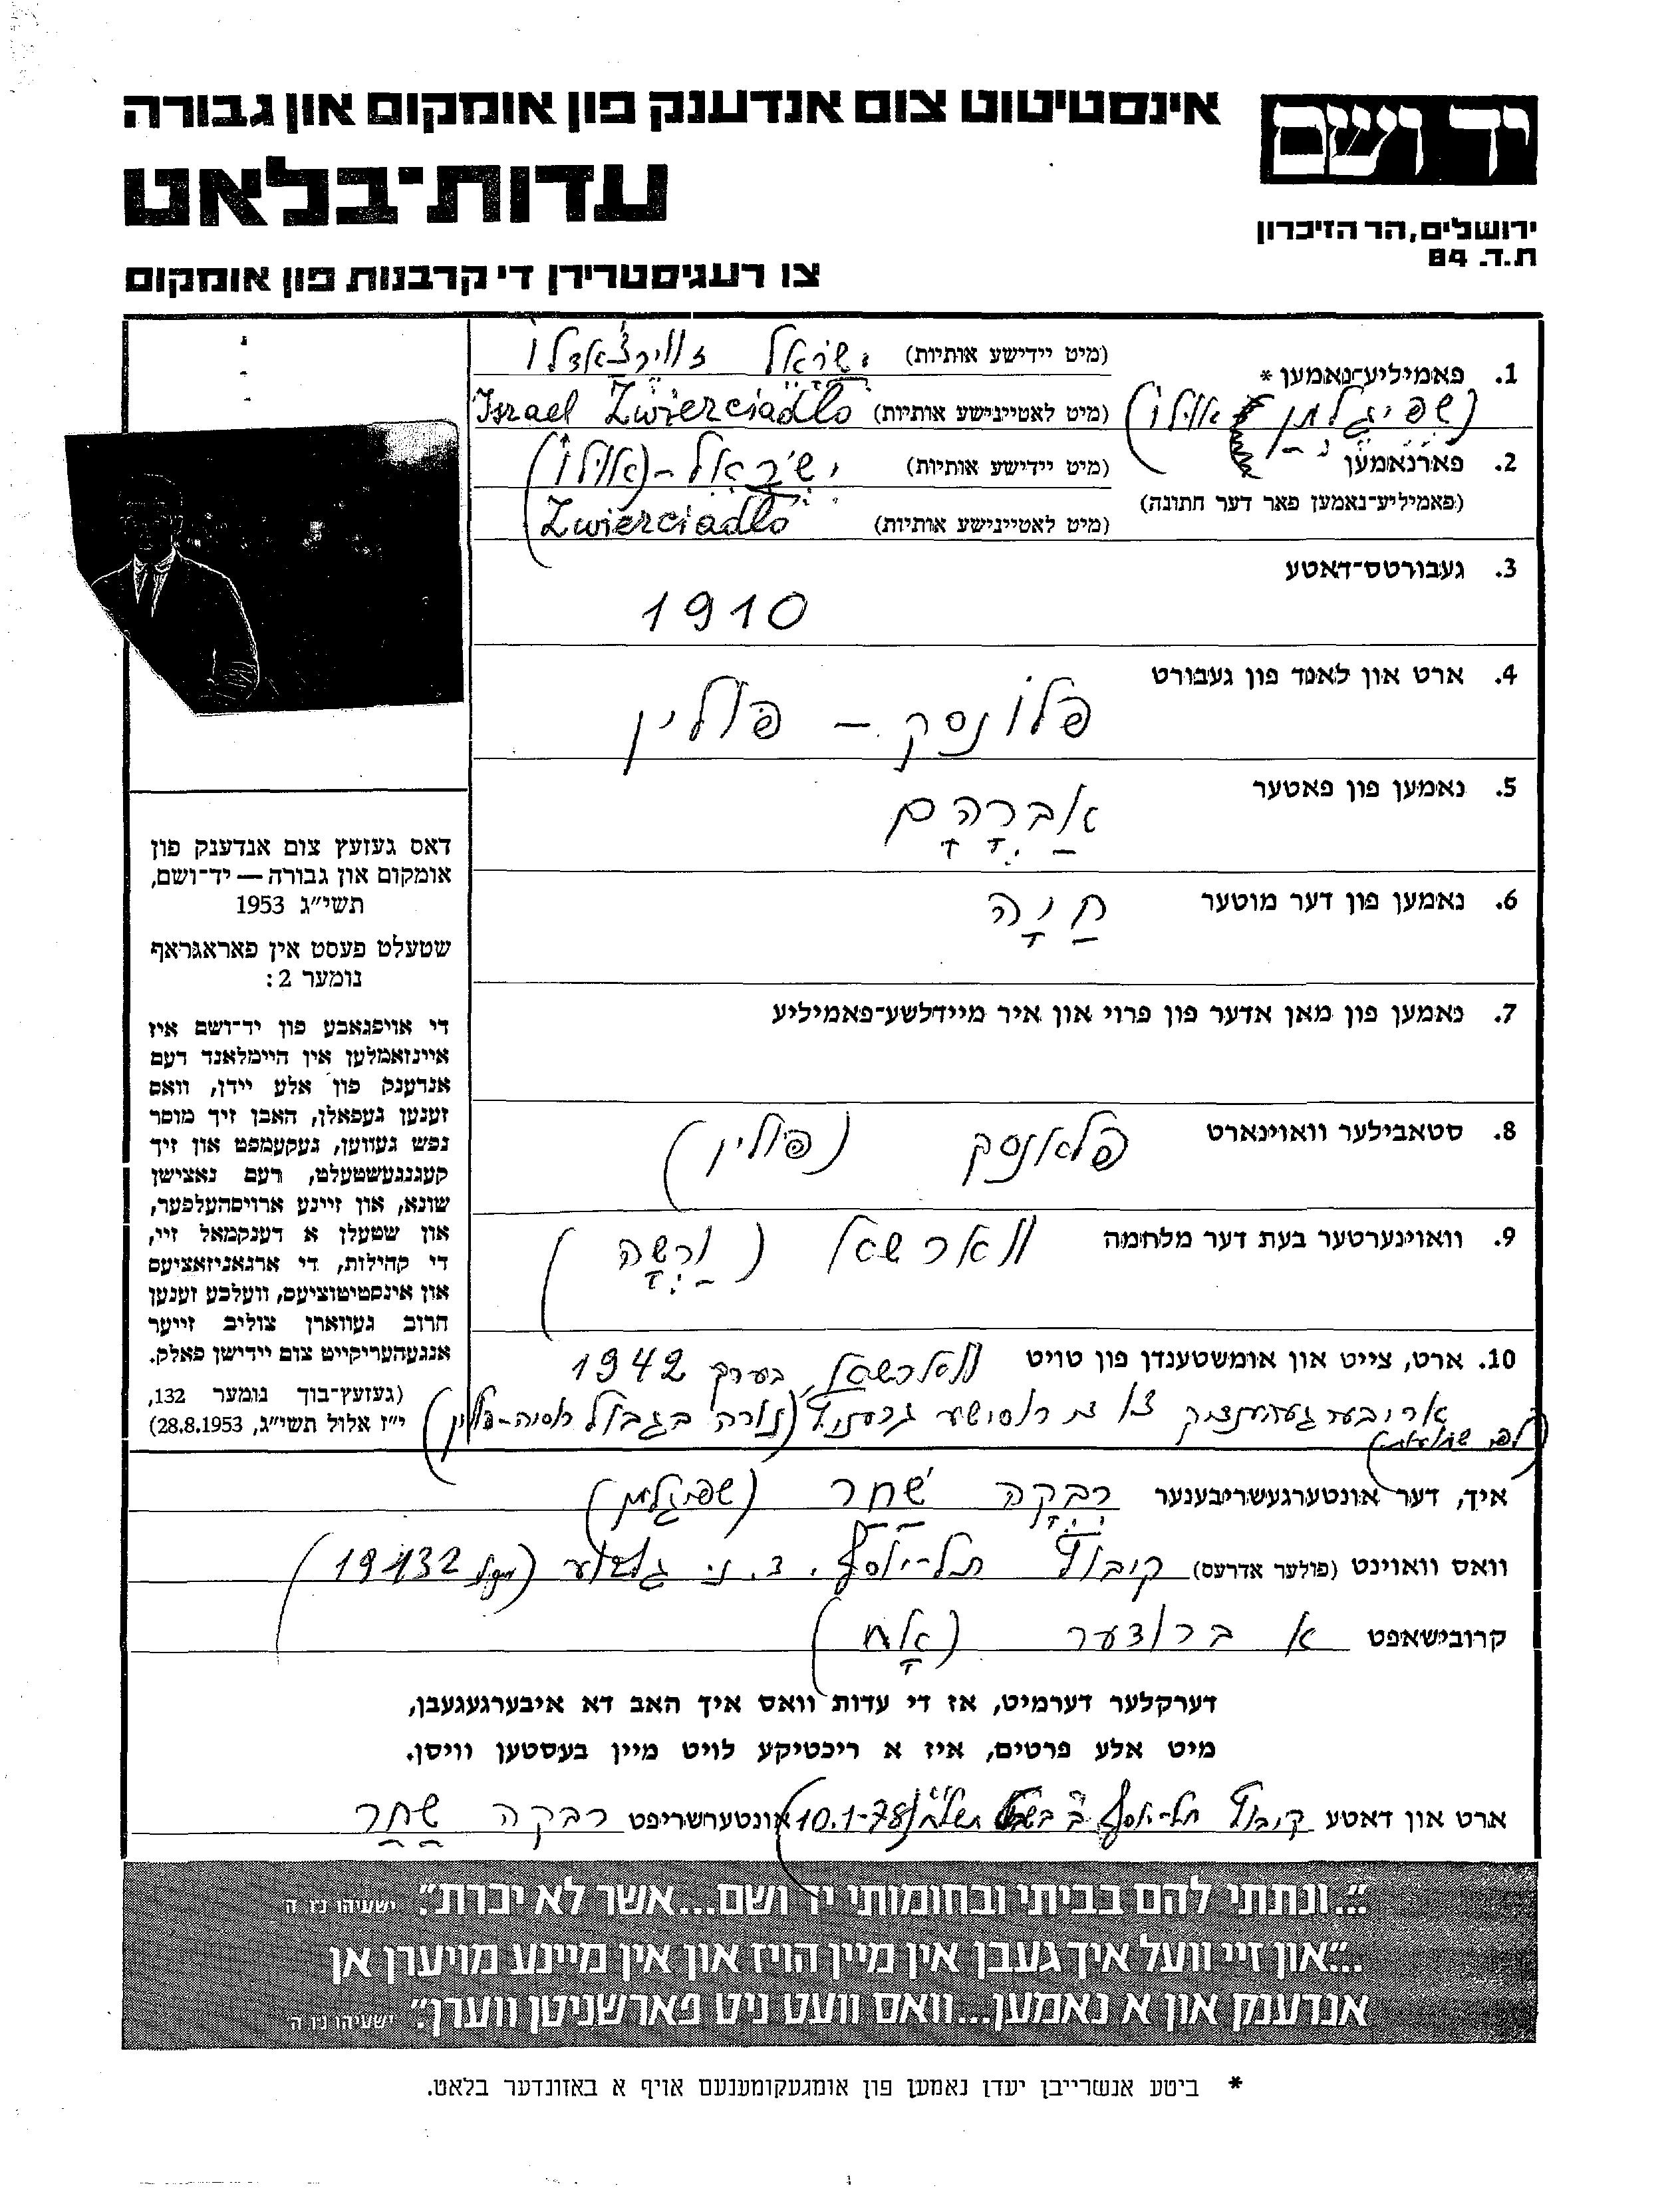 אינסטיטוט צום אנדענק פון אומקום און גבורה
יד ושם
עדות־בלאט
ירושלים, הר הזיכרון
ת.ד. 84
צו רעגיסטרירן די קרבנות פון אומקום
1. פאמיליע־נאמען *
(מיט יידישע אותיות) ישראל זווירצאדלו
(מיט לאטיינישע אותיות) Israel Zwierciadlo
2. פארנאמען
(פאמיליע־נאמען פאר דער חתונה)
(מיט יידישע אותיות) ישראל
(מיט לאטיינישע אותיות) Zwierciadlo
3. געבורטס־דאטע
1910
4. ארט און לאנד פון געבורט
פלונסק – פולין
5. נאמען פון פאטער
אַבְרָהָם
6. נאמען פון דער מוטער
חַנָה
7. נאמען פון מאן אדער פון פרוי און איר מיידלשע־פאמיליע
8. סטאבילער וואוינארט פלאנסק (פולין)
9. וואוינערטער בעת דער מלחמה ווארשא (וַרְשָה)
10. ארט, צייט און אומשטענדן פון טויט ווארשא, בערך 1942
דאס געזעץ צום אנדענק פון
אומקום און גבורה — יד־ושם,
תשי״ג 1953
שטעלט פעסט אין פאראגראף
נומער 2:
די אויפגאבע פון יד־ושם איז
איינזאמלען אין היימלאנד דעם
אנדענק פון אלע יידן, וואס
זענען געפאלן, האבן זיך מוסר
נפש געווען, געקעמפט און זיך
קעגנגעשטעלט, דעם נאצישן
שונא, און זיינע ארויסהעלפער,
און שטעלן א דענקמאל זיי,
די קהילות, די ארגאניזאציעס
און אינסטיטוציעס, וועלכע זענען
חרוב געווארן צוליב זייער
אנגעהעריקייט צום יידישן פאלק.
(געזעץ־בוך נומער 132,
י״ז אלול תשי״ג, 28.8.1953)
איך, דער אונטערגעשריבענער רִבְקָה שַׁחַר (שפיגלמן)
וואס וואוינט (פולער אדרעס) קיבוץ תל־יוסף, ד.נ. גלבוע (מיקוד 19132)
קרובישאפט א ברודער (אָח)
דערקלער דערמיט, אז די עדות וואס איך האב דא איבערגעגעבן,
מיט אלע פרטים, איז א ריכטיקע לויט מיין בעסטען וויסן.
ארט און דאטע קיבוץ תל־יוסף ב׳ בשבט תשל״ח (10.1-78) אונטערשריפט רבקה שַחַר
״...ונתתי להם בביתי ובחומותי יד ושם...אשר לא יכרת״. ישעיהו נו, ה
...״און זיי וועל איך געבן אין מיין הויז און אין מיינע מויערן אן
אנדענק און א נאמען...וואס וועט ניט פארשניטן ווערן״. ישעיהו נו, ה
* ביטע אנשרייבן יעדן נאמען פון אומגעקומענעם אויף א באזונדער בלאט.